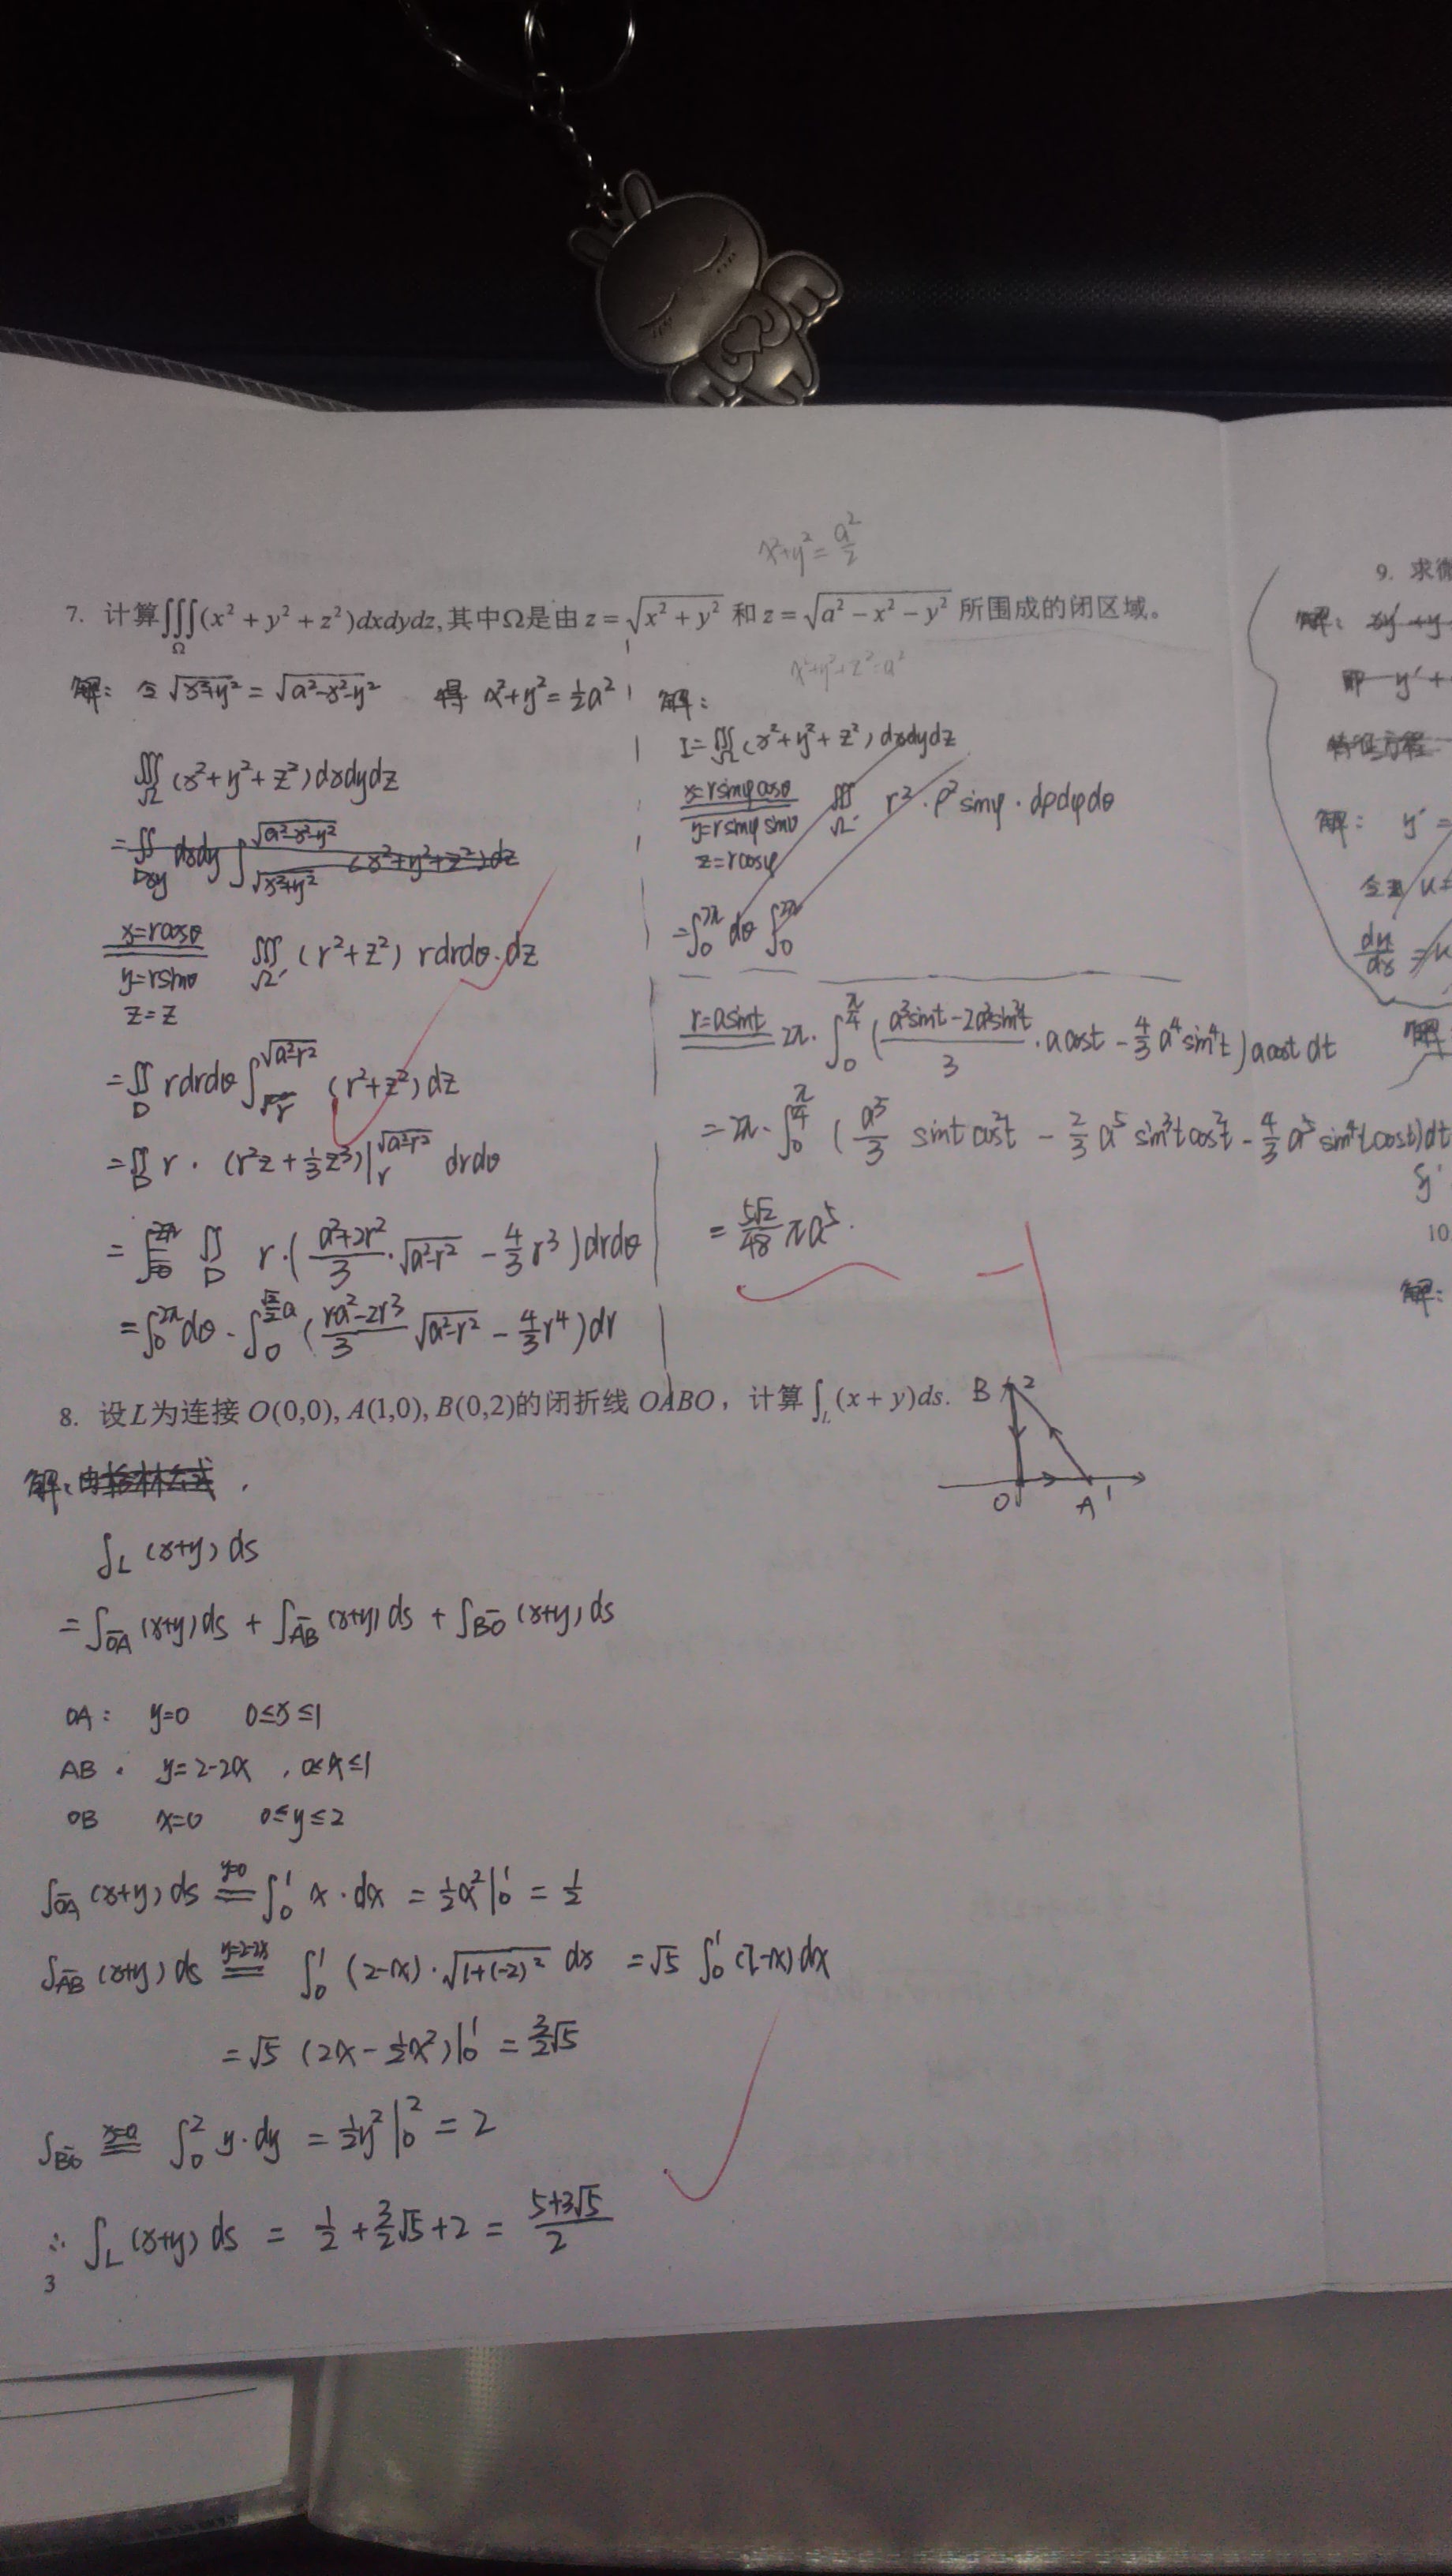 x²+y²=a²/2
7. 计算∭_Ω(x²+y²+z²)dxdydz,其中Ω是由z=√(x²+y²)和z=√(a²−x²−y²)所围成的闭区域。
x²+y²+z²=a²
解: 令√(x²+y²)=√(a²-x²-y²) 得 x²+y²=½a²
∭_Ω(x²+y²+z²)dxdydz
=∬_Dxy dxdy∫_{√(x²+y²)}^{√(a²-x²-y²)}(x²+y²+z²)dz
x=rcosθ
y=rsinθ ∭_Ω'(r²+z²) rdrdθ·dz
z=z
=∬_D rdrdθ∫_r^{√(a²-r²)}(r²+z²)dz
=∬_D r·(r²z+⅓z³)|_r^{√(a²-r²)} drdθ
=∬_D r·((a²+2r²)/3·√(a²-r²) - 4/3 r³)drdθ
=∫_0^{2π}dθ·∫_0^{√2/2 a}((ra²-2r³)/3 √(a²-r²) - 4/3 r⁴)dr
解:
I=∭_Ω(x²+y²+z²)dxdydz
x=rsinφcosθ
y=rsinφsinθ ∭_Ω' r²·ρ²sinφ·dρdφdθ
z=rcosφ
=∫_0^{2π}dθ∫_0^{2π}
r=asint 2π·∫_0^{π/4}((a³sint-2a³sin³t)/3·acost - 4/3 a⁴sin⁴t)acost dt
=2π·∫_0^{π/4}(a⁵/3 sintcos²t - 2/3 a⁵sin³tcos²t - 4/3 a⁵sin⁴tcost)dt
=5√2/48 πa⁵.
-1
8. 设L为连接O(0,0), A(1,0), B(0,2)的闭折线OABO，计算∫_L(x+y)ds.
B 2
O A 1
解: 由格林公式
∫_L(x+y)ds
=∫_OA(x+y)ds+∫_AB(x+y)ds+∫_BO(x+y)ds
OA: y=0 0≤x≤1
AB. y=2-2x, 0≤x≤1
OB x=0 0≤y≤2
∫_OA(x+y)ds (y=0)= ∫_0^1 x·dx=½x²|_0^1=½
∫_AB(x+y)ds (y=2-2x)= ∫_0^1(2-x)·√(1+(-2)²) dx=√5∫_0^1(2-x)dx
=√5(2x-½x²)|_0^1=3/2√5
∫_BO (x=0)= ∫_0^2 y·dy=½y²|_0^2=2
∴ ∫_L(x+y)ds=½+3/2√5+2=(5+3√5)/2
3
9. 求微
解:
即 y'+
特征方程
解: y'=
令 u=
du/dx
解
y'
10
解: